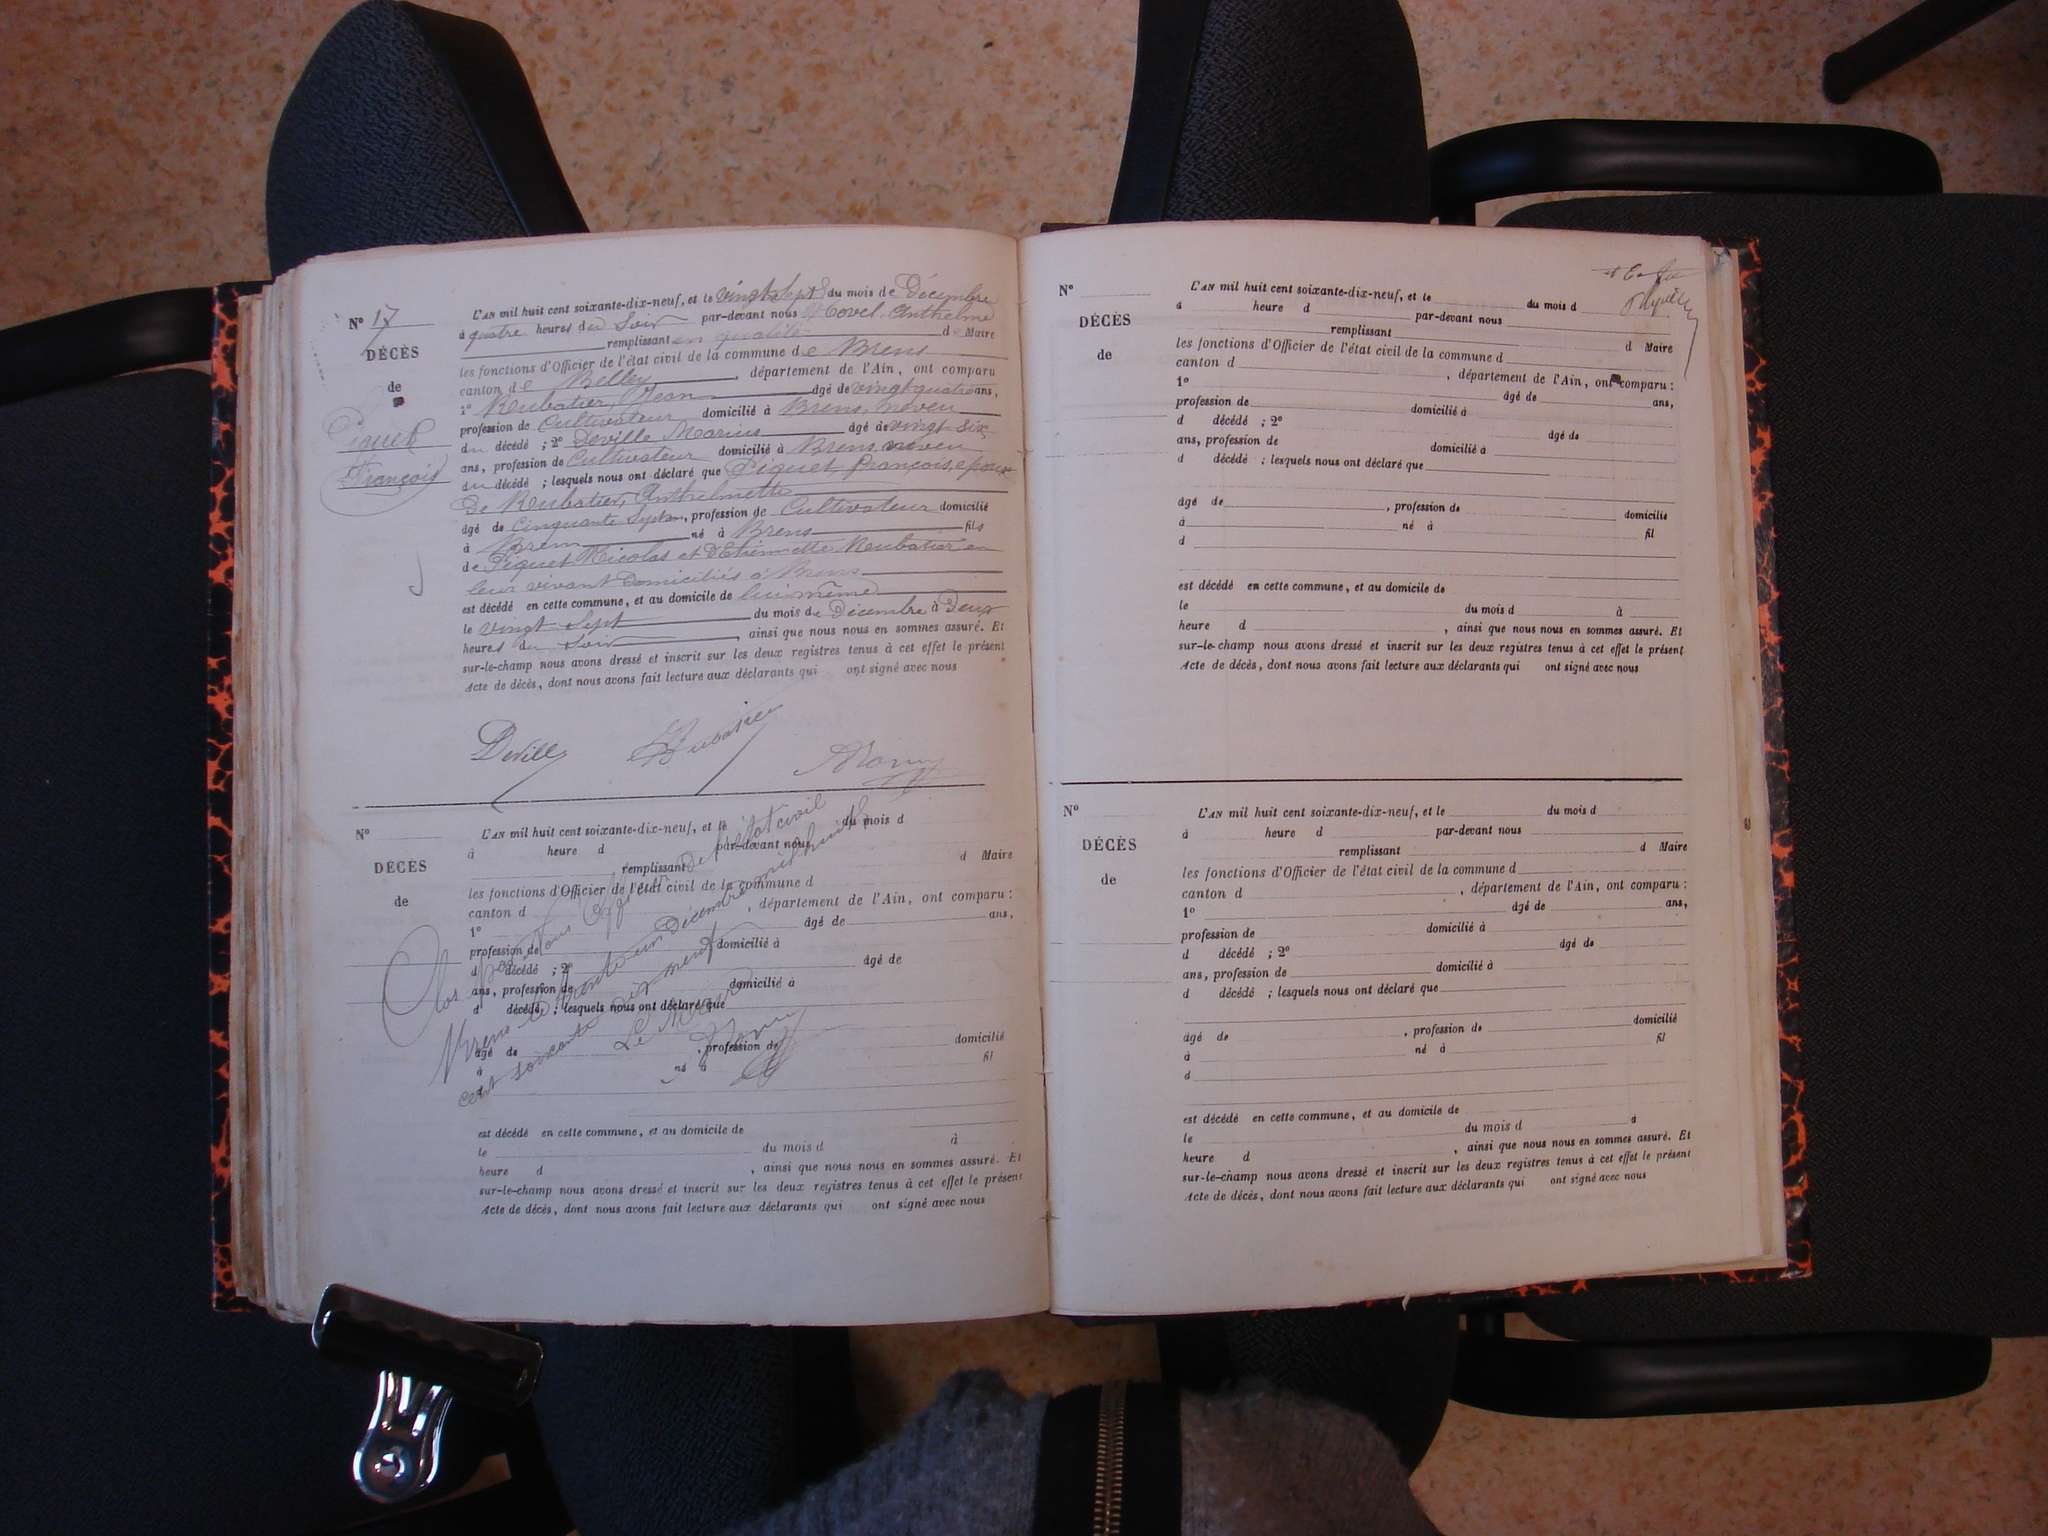 N° 17
DÉCÈS
de
Piquet
François
L'AN mil huit cent soixante-dix-neuf, et le vingt sept du mois de Décembre
à quatre heures du Soir par-devant nous Anthelme
remplissant en qualité de Maire
les fonctions d'Officier de l'état civil de la commune de Brens
canton de Belley, département de l'Ain, ont comparu
1° Reubatier, Jean âgé de vingt quatre ans,
profession de Cultivateur domicilié à Brens, neveu
du décédé ; 2° Deville Marius âgé de vingt six
ans, profession de Cultivateur domicilié à Brens neveu
du décédé ; lesquels nous ont déclaré que Piquet, François, époux
De Reubatier, Anthelmette
âgé de Cinquante Sept ans, profession de Cultivateur domicilié
à Brens né à Brens fils
de Piquet Nicolas et d'Etiennette Reubatier en
leur vivant Domiciliés à Brens
est décédé en cette commune, et au domicile de lui même
le vingt Sept du mois de Décembre à Deux
heures du Soir, ainsi que nous nous en sommes assuré. Et
sur-le-champ nous avons dressé et inscrit sur les deux registres tenus à cet effet le présent
Acte de décès, dont nous avons fait lecture aux déclarants qui ont signé avec nous
Deville
N°
DÉCÈS
de
L'AN mil huit cent soixante-dix-neuf, et le du mois d
à heure d par-devant nous
remplissant d Maire
les fonctions d'Officier de l'état civil de la commune d
canton d , département de l'Ain, ont comparu :
1° âgé de ans,
profession de domicilié à
d décédé ; 2° âgé de
ans, profession de domicilié à
d décédé ; lesquels nous ont déclaré que
âgé de , profession de domicilié
à né à fil
d
est décédé en cette commune, et au domicile de
le du mois d à
heure d , ainsi que nous nous en sommes assuré. Et
sur-le-champ nous avons dressé et inscrit sur les deux registres tenus à cet effet le présent
Acte de décès, dont nous avons fait lecture aux déclarants qui ont signé avec nous
Clos par nous Officier de l'état civil
Brens le trente un Décembre mil huit
cent soixante dix neuf
Le Maire
N°
DÉCÈS
de
L'AN mil huit cent soixante-dix-neuf, et le du mois d
à heure d par-devant nous
remplissant d Maire
les fonctions d'Officier de l'état civil de la commune d
canton d , département de l'Ain, ont comparu :
1° âgé de ans,
profession de domicilié à
d décédé ; 2° âgé de
ans, profession de domicilié à
d décédé ; lesquels nous ont déclaré que
âgé de , profession de domicilié
à né à fil
d
est décédé en cette commune, et au domicile de
le du mois d à
heure d , ainsi que nous nous en sommes assuré. Et
sur-le-champ nous avons dressé et inscrit sur les deux registres tenus à cet effet le présent
Acte de décès, dont nous avons fait lecture aux déclarants qui ont signé avec nous
N°
DÉCÈS
de
L'AN mil huit cent soixante-dix-neuf, et le du mois d
à heure d par-devant nous
remplissant d Maire
les fonctions d'Officier de l'état civil de la commune d
canton d , département de l'Ain, ont comparu :
1° âgé de ans,
profession de domicilié à
d décédé ; 2° âgé de
ans, profession de domicilié à
d décédé ; lesquels nous ont déclaré que
âgé de , profession de domicilié
à né à fil
d
est décédé en cette commune, et au domicile de
le du mois d à
heure d , ainsi que nous nous en sommes assuré. Et
sur-le-champ nous avons dressé et inscrit sur les deux registres tenus à cet effet le présent
Acte de décès, dont nous avons fait lecture aux déclarants qui ont signé avec nous